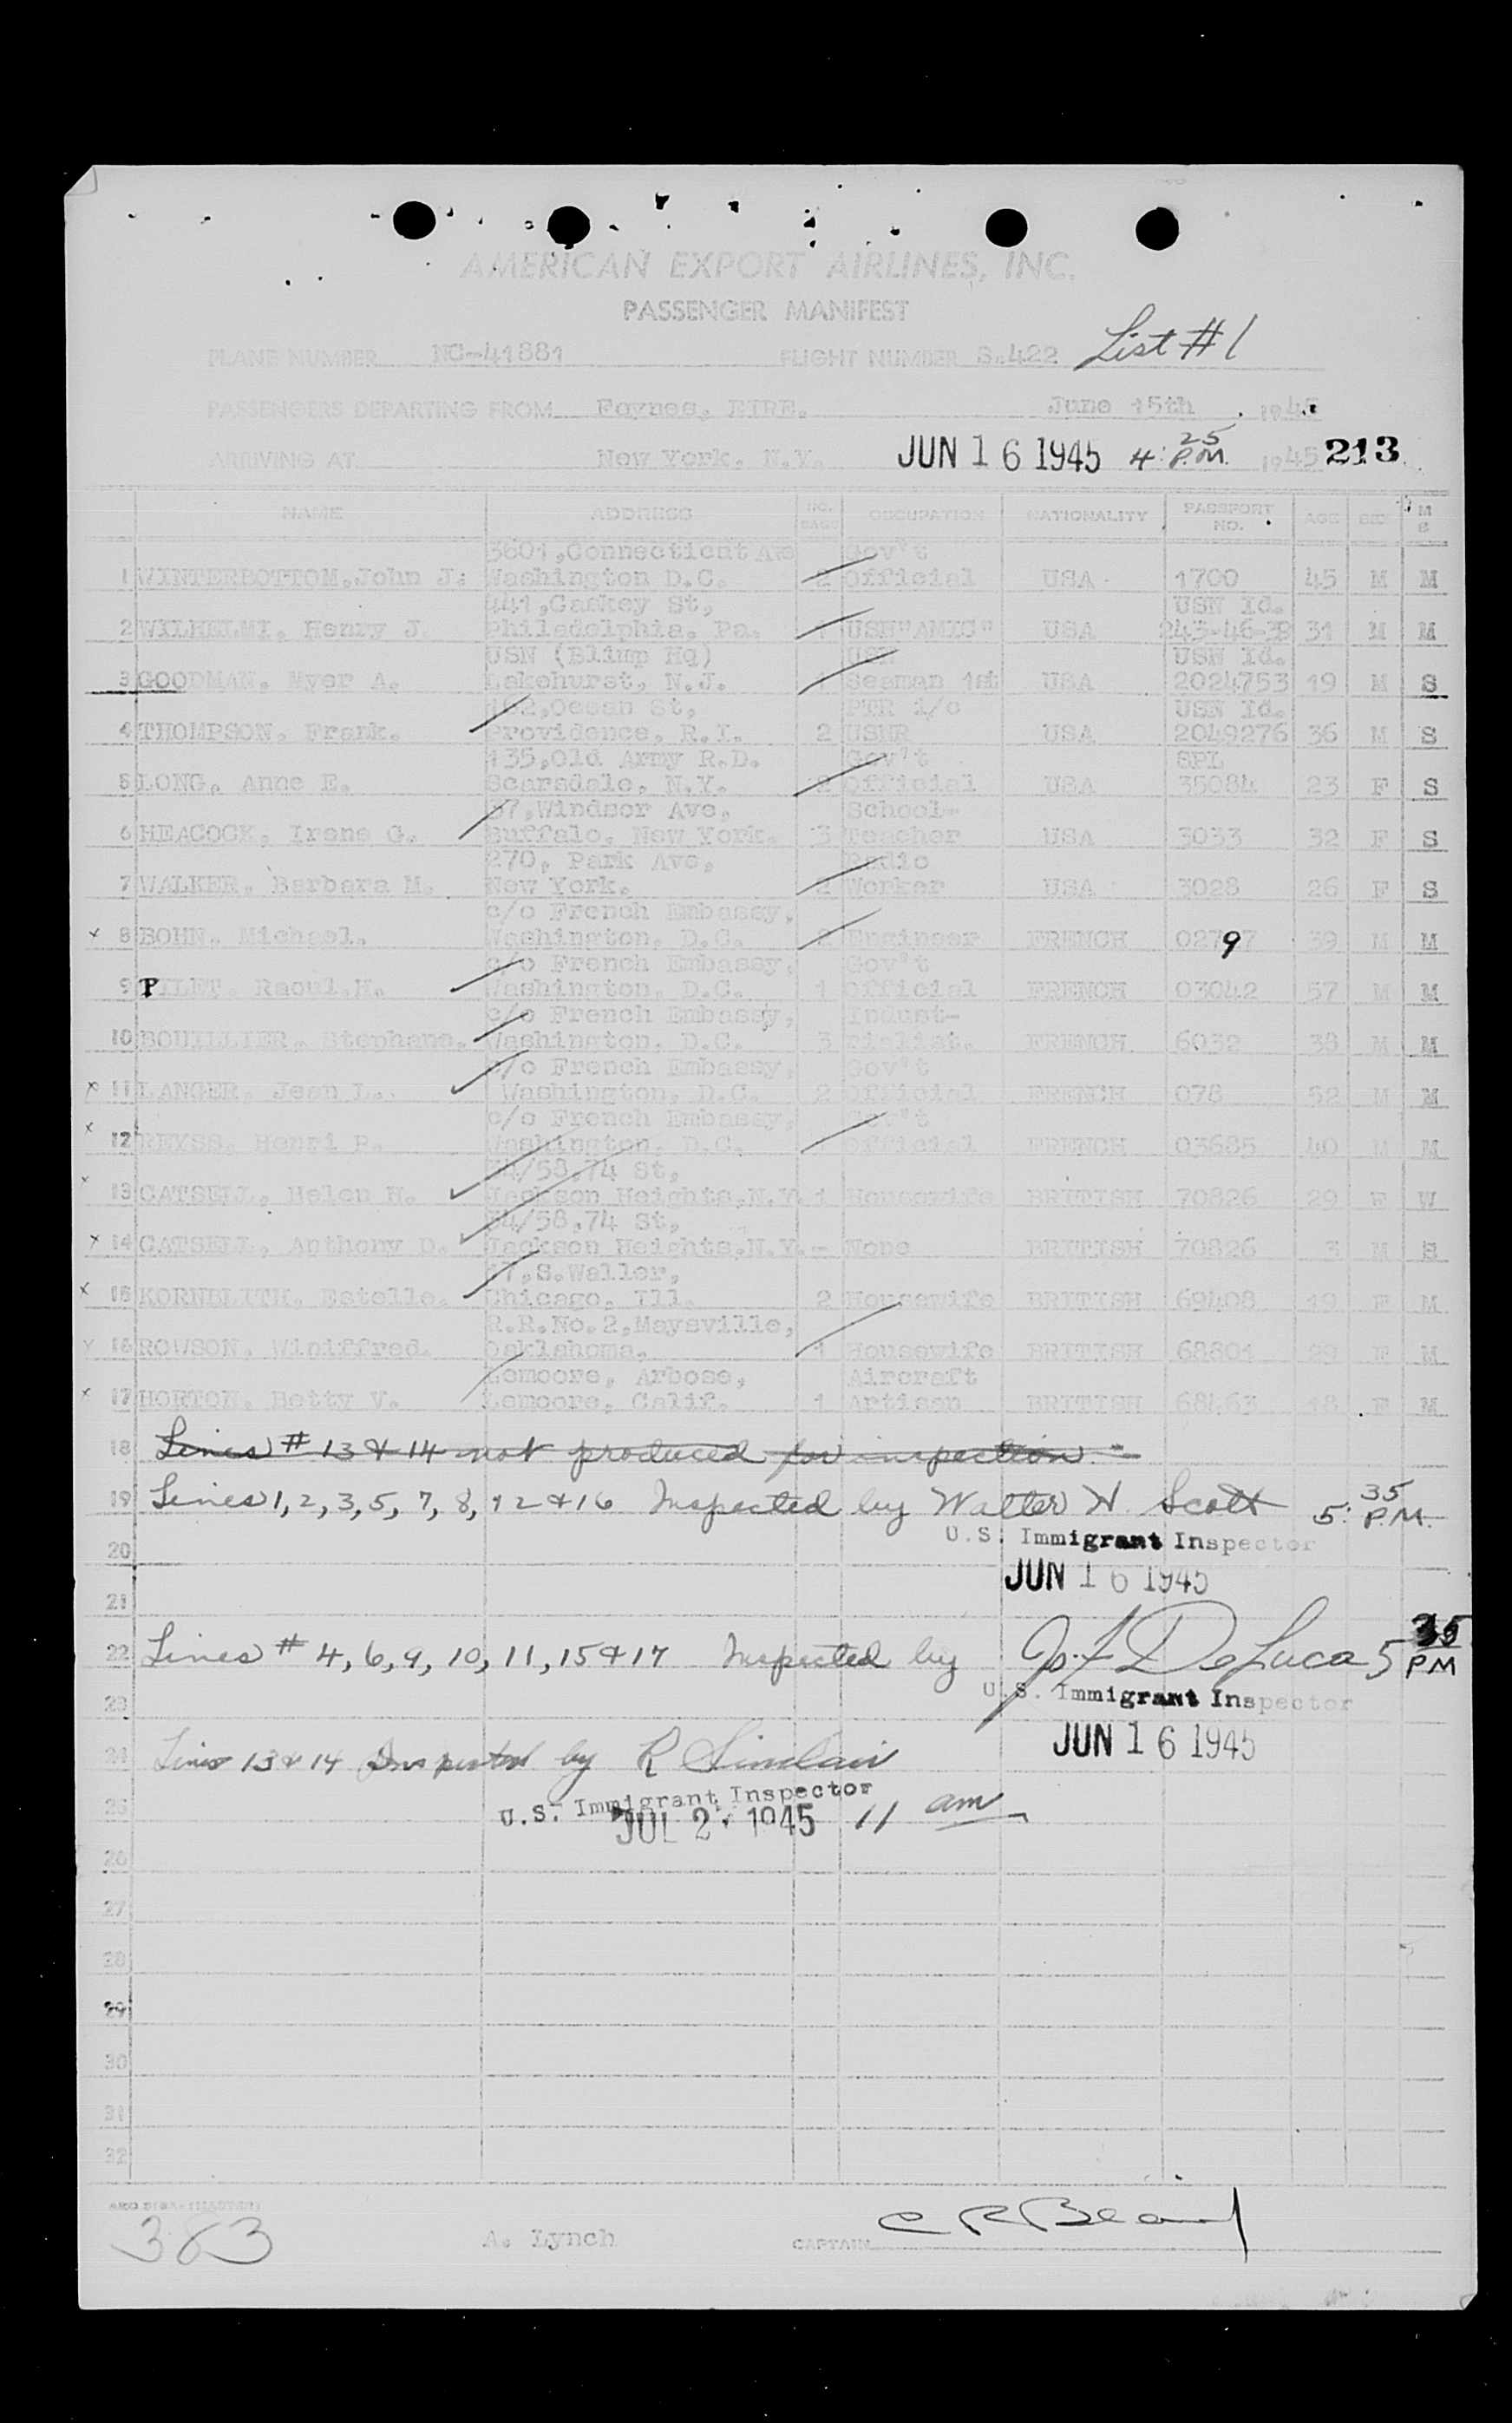 AMERICAN EXPORT AIRLINES, INC.
PASSENGER MANIFEST
PLANE NUMBER NC-41881 FLIGHT NUMBER S.422 List #1
PASSENGERS DEPARTING FROM Foynes, EIRE. June 15th 1945
ARRIVING AT New York. N.Y. JUN 16 1945 4:25 P.M. 1945 213
NAME ADDRESS NO. BAGS OCCUPATION NATIONALITY PASSPORT NO. AGE SEX M S
3601,Connecticut Ave Gov't
1 WINTERBOTTOM.John J. Washington D.C. 2 Official USA 1700 45 M M
441,Caskey St, USN Id.
2 WILHELMI. Henry J. Philadelphia. Pa. 1 USN"AMIC" USA 243-46-39 31 M M
USN (Blimp Hq) USN USN Id.
3 GOODMAN. Myer A. Lakehurst, N.J. 1 Seaman 1st USA 2024753 19 M S
102,Ocean St, PTR 1/c USN Id.
4 THOMPSON. Frank. Providence. R.I. 2 USNR USA 2049276 36 M S
135,Old Army R.D. Gov't SPL
5 LONG, Anne E. Scarsdale. N.Y. 2 Official USA 35084 23 F S
37,Windsor Ave, School-
6 HEACOCK, Irene G. Buffalo. New York. 3 Teacher USA 3033 32 F S
270, Park Ave, Radio
7 WALKER, Barbara M. New York. 2 Worker USA 3028 26 F S
c/o French Embassy,
x 8 BOHN. Michael. Washington. D.C. 2 Engineer FRENCH 02797 39 M M
c/o French Embassy, Gov't
9 PILET. Raoul.H. Washington. D.C. 1 Official FRENCH 03042 57 M M
c/o French Embassy, Indust-
10 BOUILLIER. Stephane. Washington. D.C. 3 rialist. FRENCH 6032 38 M M
c/o French Embassy, Gov't
x 11 LANGER, Jean L. Washington, D.C. 2 Official FRENCH 078 52 M M
c/o French Embassy, Gov't
x 12 REYSS. Henri P. Washington. D.C. Official FRENCH 03685 40 M M
34/58.74 St,
x 13 CATSELL, Helen H. Jackson Heights,N.Y. 1 Housewife BRITISH 70826 29 F W
34/58.74 St,
x 14 CATSELL, Anthony D. Jackson Heights.N.Y. - None BRITISH 70826 3 M S
17,S.Waller,
x 15 KORNBLITH. Estelle. Chicago, Ill. 2 Housewife BRITISH 69408 19 F M
R.R.No.2,Maysville,
x 16 ROWSON. Winiffred. Oaklahoma. 1 Housewife BRITISH 68801 29 F M
Lemoore, Arbose, Aircraft
x 17 HORTON. Betty V. Lemoore, Calif. 1 Artisan BRITISH 68463 18 F M
18 Lines # 13 & 14 not produced for inspection.
19 Lines 1, 2, 3, 5, 7, 8, 12 & 16 Inspected by Walter H. Scott 5:35 P.M.
20 U.S. Immigrant Inspector
21 JUN 16 1945
22 Lines # 4, 6, 9, 10, 11, 15 & 17 Inspected by J. F. DeLuca 5 35 PM
23 U.S. Immigrant Inspector
JUN 16 1945
24 Lines 13 & 14 Inspected by R Sinclair
25 U.S. Immigrant Inspector
JUL 2 1945 11 am
26
27
28
29
30
31
32
383 A. Lynch CAPTAIN C R Beard